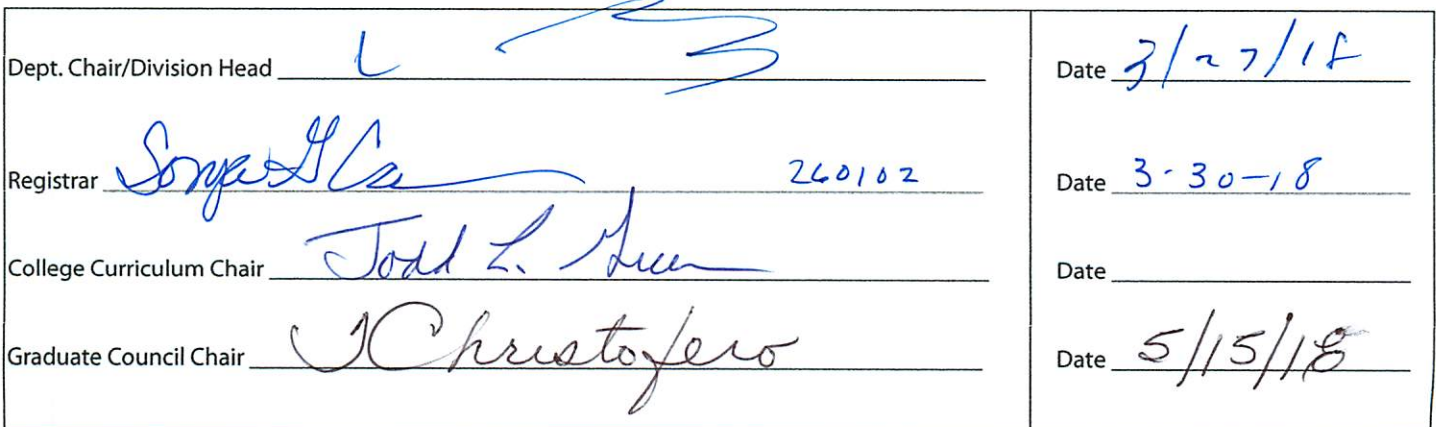 Dept. Chair/Division Head Date 3/27/18
Registrar Sonja G Ca 260102 Date 3-30-18
College Curriculum Chair Todd L. Green Date
Graduate Council Chair TChristofero Date 5/15/18